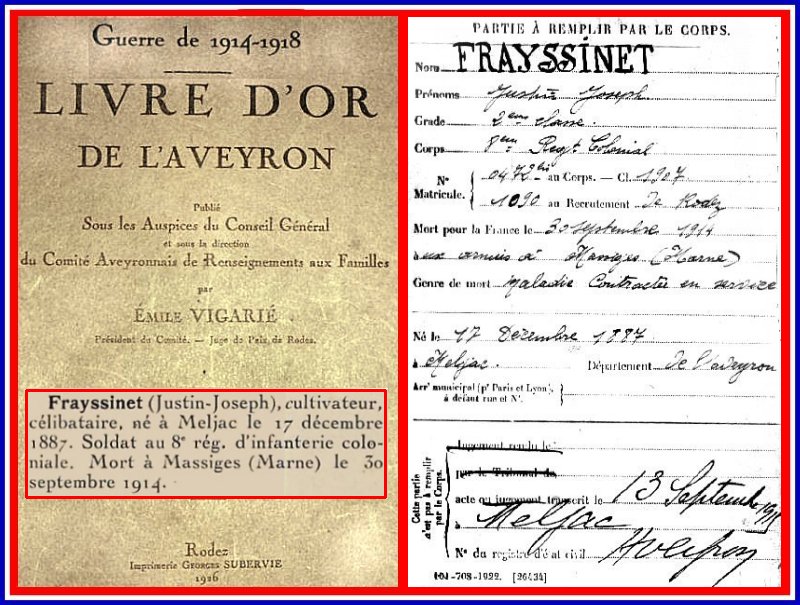 Guerre de 1914-1918
LIVRE D'OR
DE L'AVEYRON
Publié
Sous les Auspices du Conseil Général
et sous la direction
du Comité Aveyronnais de Renseignements aux Familles
par
ÉMILE VIGARIÉ
Président du Comité. — Juge de Paix de Rodez.
Frayssinet (Justin-Joseph), cultivateur,
célibataire, né à Meljac le 17 décembre
1887. Soldat au 8e rég. d'infanterie colo-
niale. Mort à Massiges (Marne) le 30
septembre 1914.
Rodez
Imprimerie GEORGES SUBERVIE
1926
PARTIE À REMPLIR PAR LE CORPS.
Nom FRAYSSINET
Prénoms Justin Joseph
Grade 2eme classe
Corps 8em Regt Colonial
No 0472 bis au Corps. — Cl. 1907
Matricule. 1090 au Recrutement de Rodez
Mort pour la France le 30 septembre 1914
à aux armées à Massiges (Marne)
Genre de mort maladie contractée en service
Né le 17 Décembre 1887
à Meljac Département de l'Aveyron
Arrt municipal (pr Paris et Lyon),
à défaut rue et No.
Cette partie
n'est pas à remplir
par le Corps.
Jugement rendu le
par le Tribunal de
acte ou jugement transcrit le 13 Septembre 1915
à Meljac
No du registre d'état civil Aveyron
101-708-1922. [26434]